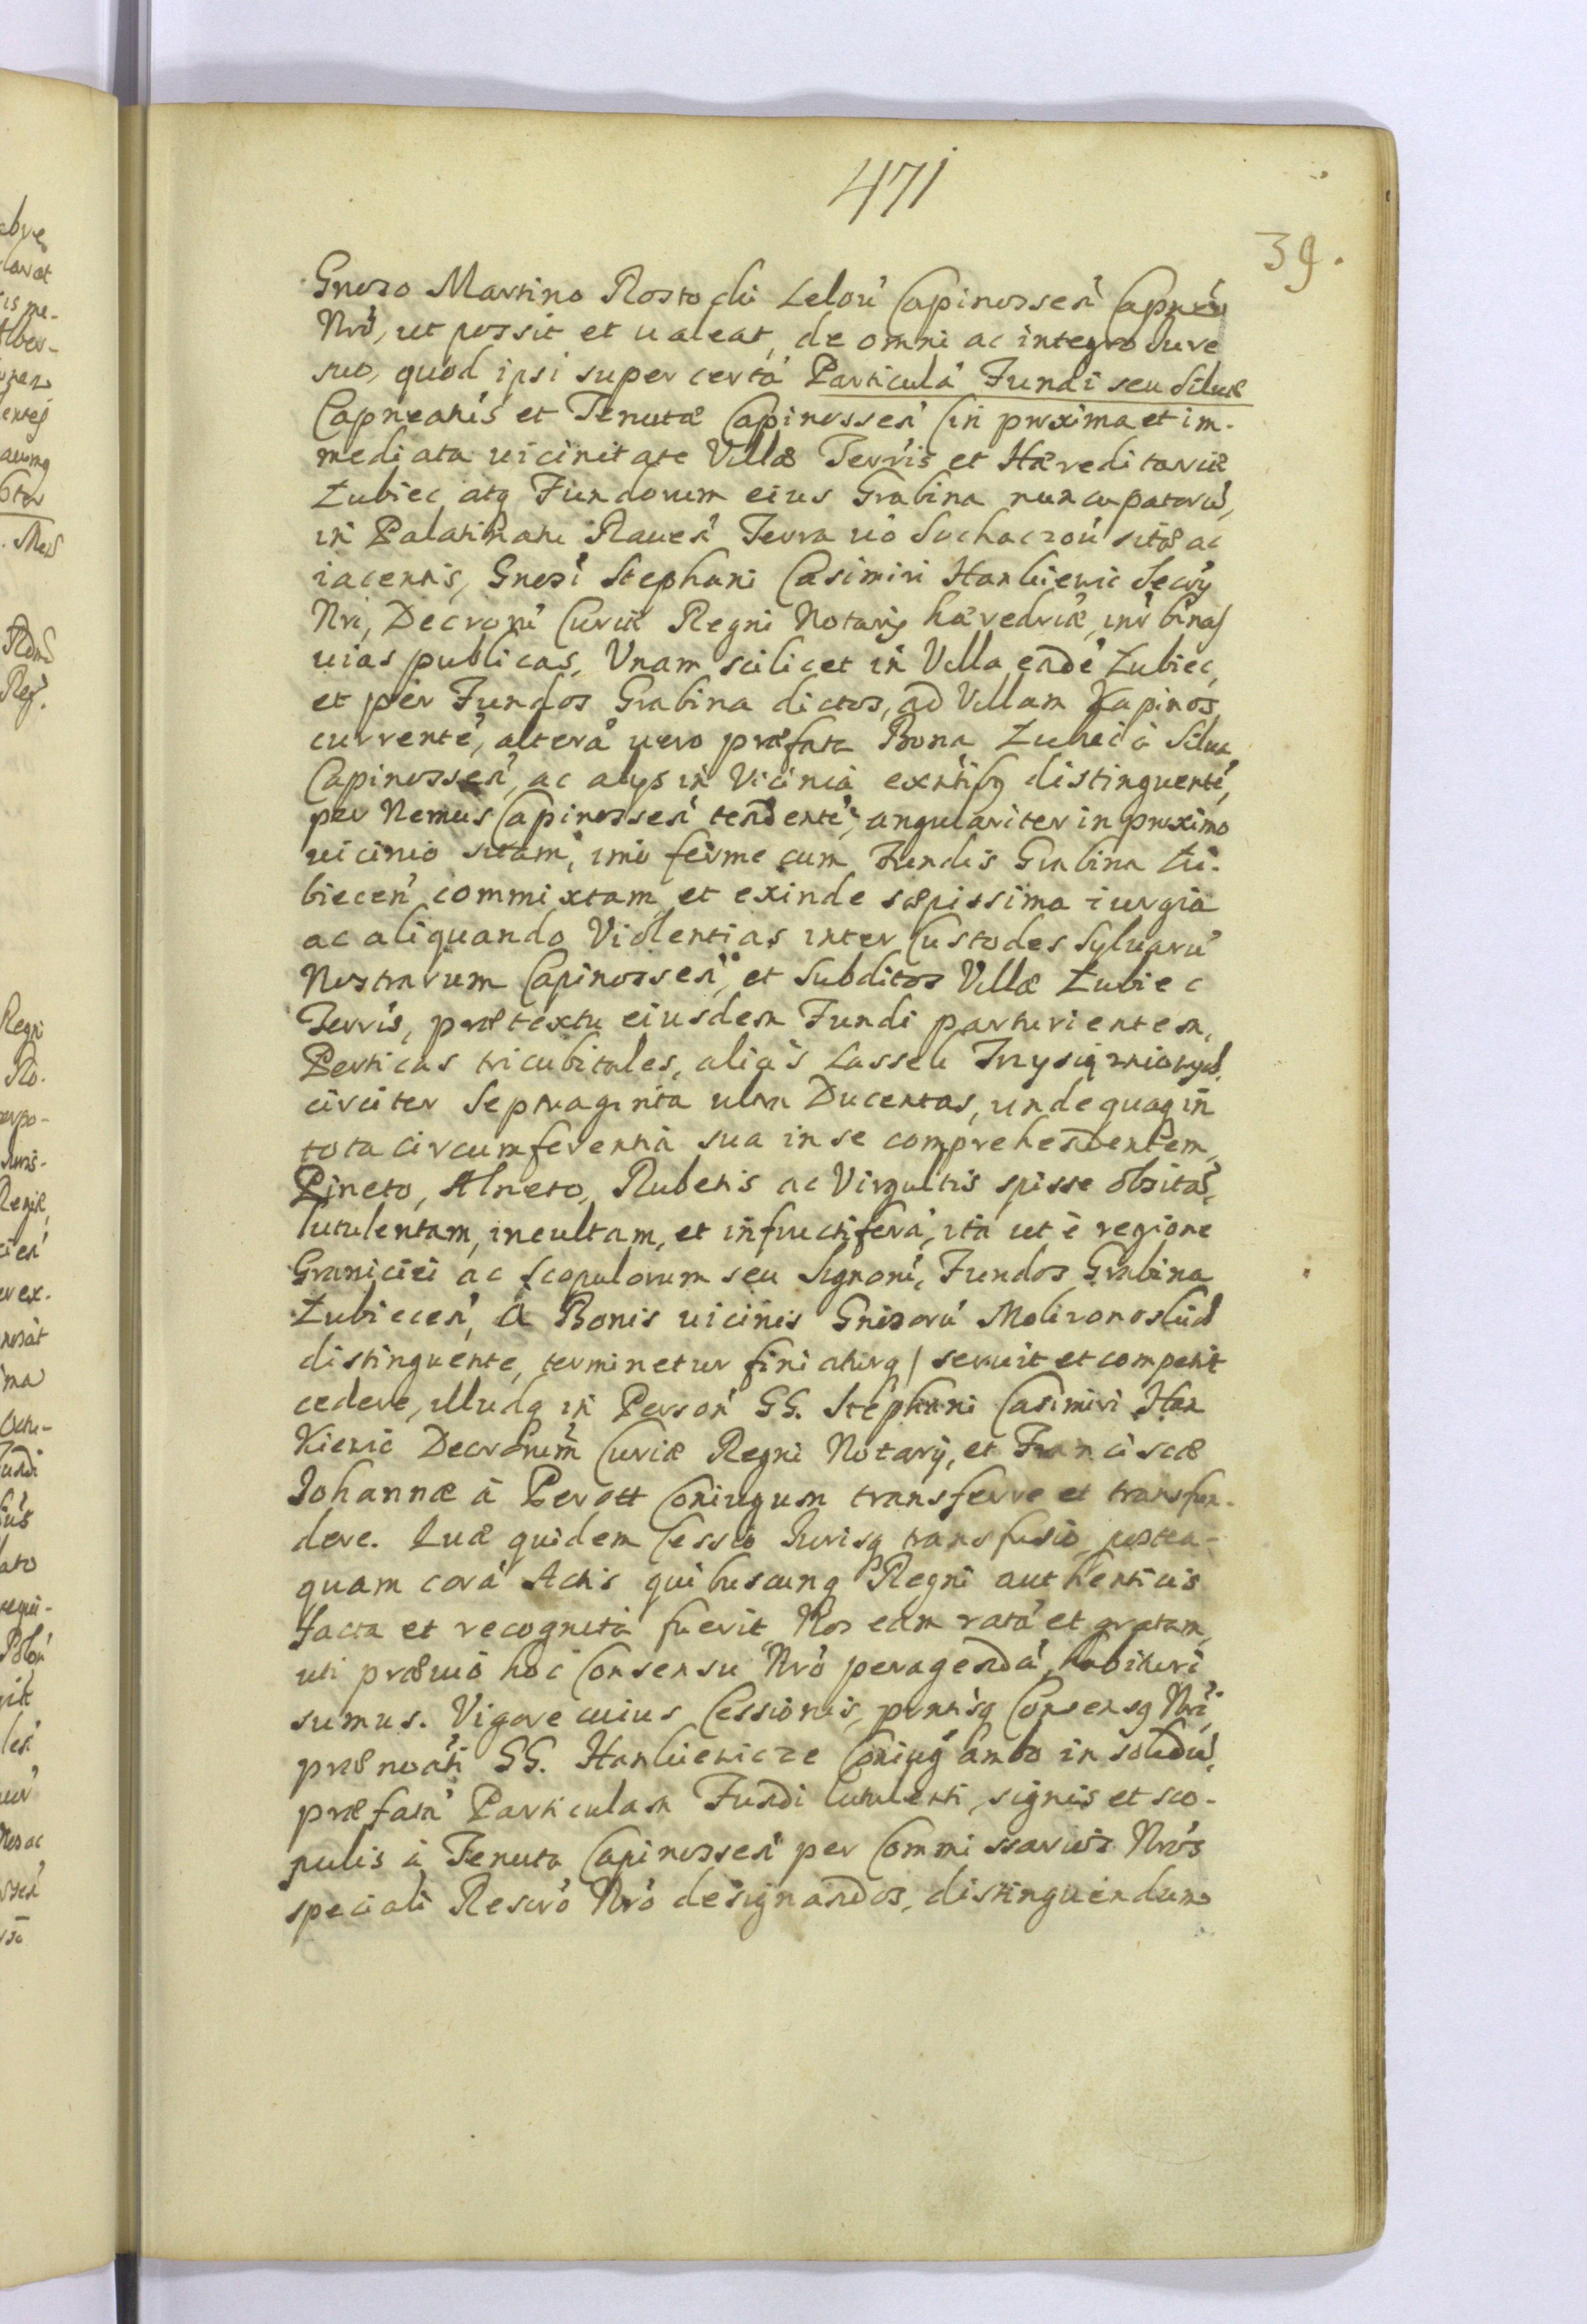 471
39.
Gnoso Martino Rostocki Lelou Capinossen Capneo
Nro, ut possit et ualeat, de omni ac integro Iure
suo, quod ipsi super certa Particula Fundi seu Siluæ
Capneatus et Tenutæ Capinossen (in proxima et im-
mediata uicinitate Villæ Terris et Hæreditariæ
Zubiec atq Fundorum eius Grabina nuncupatoru,
in Palatinatu Rauen Terra uo Sochaczou sitæ ac
iacentis, Gnosi Stephani Casimiri Hankiewic Secry
Nri, Decroru Curiæ Regni Notarij hæredriæ, intr binas
uias publicas, Vnam scilicet in Villa eade Zubiec,
et per Fundos Grabina dictos, ad Villam Kapinos
currente, altera uero præfata Bona Zubiec à Silua
Capinossen, ac alijs in Vicinia exntibg distinguente,
per Nemus Capinossen tendente, angulariter in proximo
uicinio sitam, imo ferme cum Fundis Grabina Zu-
biecen commixtam, et exinde sæpissima iurgia
ac aliquando Violentias inter Custodes Syluaru
Nostrarum Capinossen, et Subditos Villæ Zubiec
Terris, prætextu eiusdem Fundi parturientem,
Perticas tricubitales, aliàs Laseli Trzyłokciowych
circiter Septuaginta ultra Ducentas, undequaq in
tota circumferentia sua in se comprehendentem,
Pineto, Alneto, Rubetis ac Virgultis spisse obsita,
lutulentam, incultam, et infructifera, ita ut è regione
Graniciei ac Scopulorum seu Signoru, Fundos Grabina
Zubiecen, à Bonis uicinis Gnosoru Molizonoskich
distinguente, terminetur finiaturq) seruit et competit
cedere, illudq in Person GG. Stephani Casimiri Han
Kiewic Decrorum Curiæ Regni Notarij, et Franciscæ
Iohannæ à Perott Coniugum transferre et transfun-
dere. Quæ quidem Cessio Iurisq transfusio, postea-
quam cora Actis quibuscunq Regni authenticis
facta et recognita fuerit, Nos eam rata et gratam,
uti præuio hoc Consensu Nro peragenda, habituri
sumus. Vigore cuius Cessionis, pntisq Consensq Nri,
prænoati GG. Hankiewicze Coniug ambo in solidu,
præfata Particulam Fundi lutulenti, signis et sco-
pulis à Tenuta Capinossen per Commissarios Nros
speciali Rescro Nro designandos, distinguendam